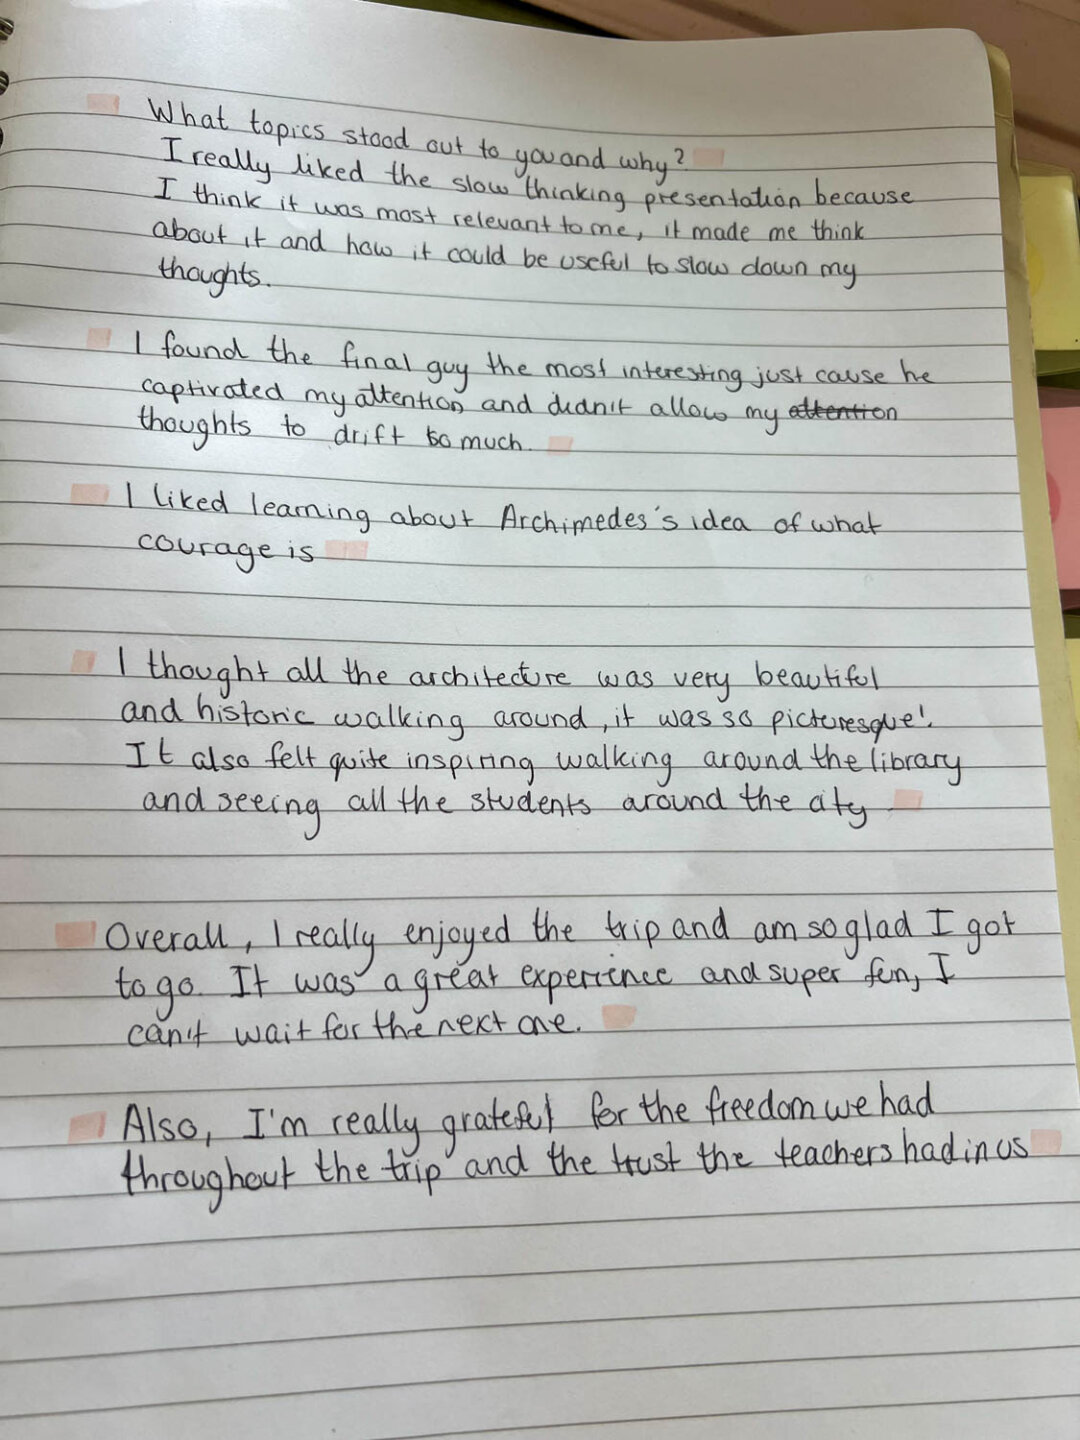 What topics stood out to you and why?
I really liked the slow thinking presentation because
I think it was most relevant to me, it made me think
about it and how it could be useful to slow down my
thoughts.
I found the final guy the most interesting just cause he
captivated my attention and didn't allow my attention
thoughts to drift so much.
I liked learning about Archimedes's idea of what
courage is
I thought all the architecture was very beautiful
and historic walking around, it was so picturesque!
It also felt quite inspiring walking around the library
and seeing all the students around the city
Overall, I really enjoyed the trip and am so glad I got
to go. It was a great experience and super fun, I
can't wait for the next one.
Also, I'm really grateful for the freedom we had
throughout the trip and the trust the teachers had in us